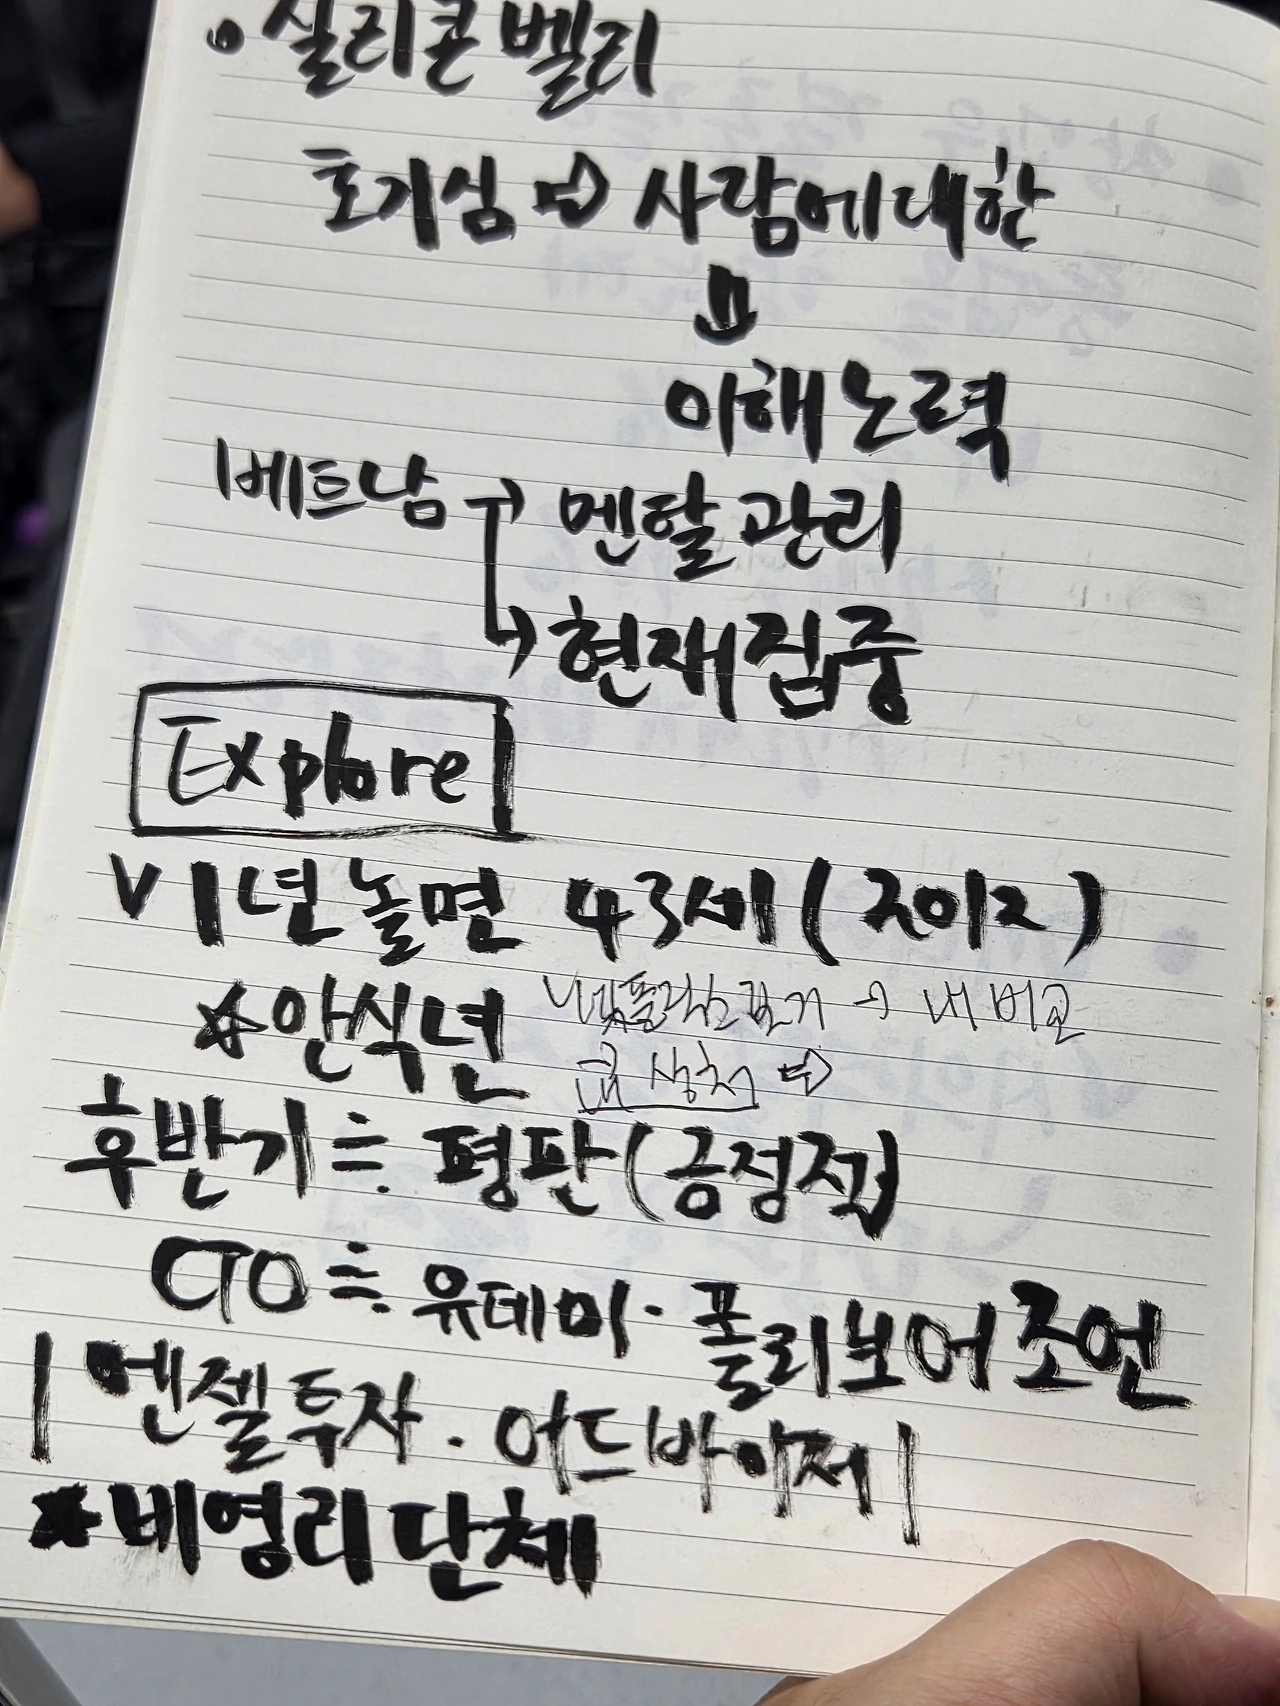 • 실리콘 벨리
호기심 ⇨ 사람에대한
⇩
이해노력
베트남 → 멘탈관리
→ 현재집중
Explore
V 1년놀면 43세(2012)
☆안식년
넷플릭스보기 → 내
상처 ⇨
후반기 ≒ 평판(긍정적)
CTO ≒ 유데미·폴리보어조언
| 엔젤투자 · 어드바이저 |
★비영리단체